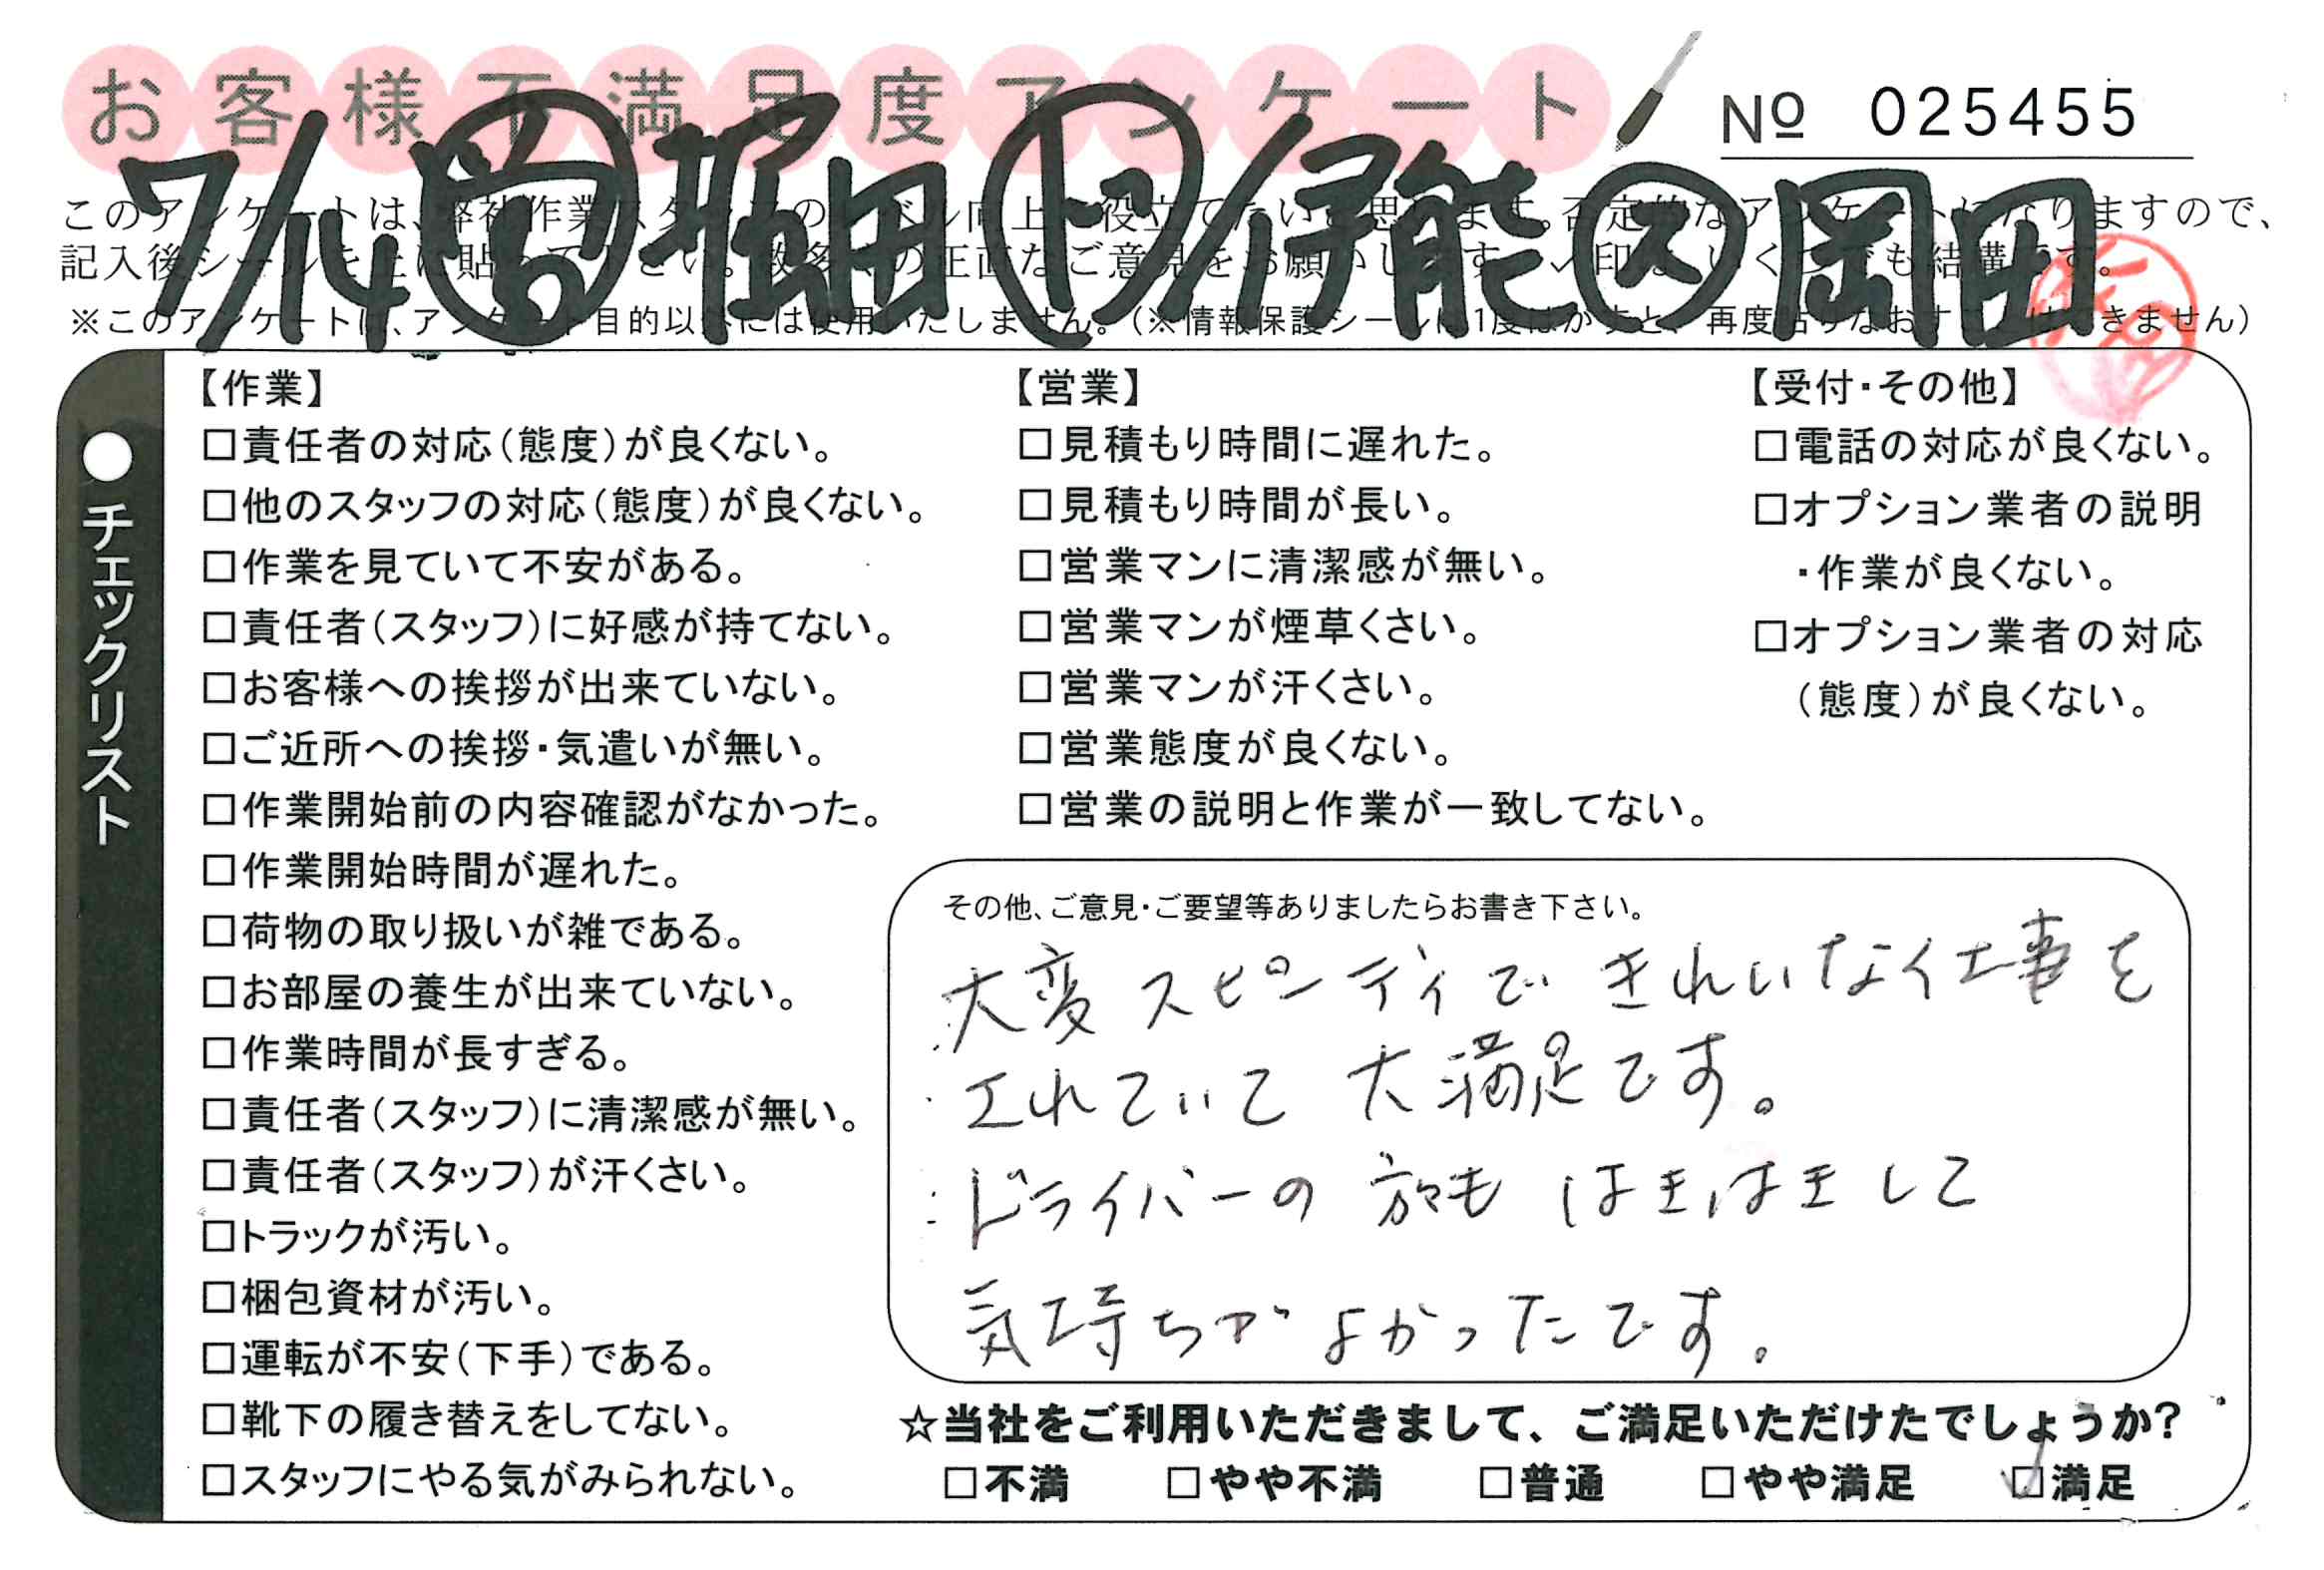 お客様不満足度アンケート
№ 025455
7/14 営 堀田 ド/伊能 ス 岡田
このアンケートは、弊社作業スタッフのレベル向上に役立てたいと思います。否定的なアンケートになりますので、
記入後シールを上に貼って下さい。数多くの正直なご意見をお願いします。✓印は、いくつでも結構です。
※このアンケートは、アンケート目的以外には使用いたしません。(※情報保護シールは1度はがすと、再度貼りなおすことはできません)
●チェックリスト
【作業】
□責任者の対応(態度)が良くない。
□他のスタッフの対応(態度)が良くない。
□作業を見ていて不安がある。
□責任者(スタッフ)に好感が持てない。
□お客様への挨拶が出来ていない。
□ご近所への挨拶・気遣いが無い。
□作業開始前の内容確認がなかった。
□作業開始時間が遅れた。
□荷物の取り扱いが雑である。
□お部屋の養生が出来ていない。
□作業時間が長すぎる。
□責任者(スタッフ)に清潔感が無い。
□責任者(スタッフ)が汗くさい。
□トラックが汚い。
□梱包資材が汚い。
□運転が不安(下手)である。
□靴下の履き替えをしてない。
□スタッフにやる気がみられない。
【営業】
□見積もり時間に遅れた。
□見積もり時間が長い。
□営業マンに清潔感が無い。
□営業マンが煙草くさい。
□営業マンが汗くさい。
□営業態度が良くない。
□営業の説明と作業が一致してない。
【受付・その他】
□電話の対応が良くない。
□オプション業者の説明
・作業が良くない。
□オプション業者の対応
(態度)が良くない。
その他、ご意見・ご要望等ありましたらお書き下さい。
大変スピーディで きれいな仕事を
されていて 大満足です。
ドライバーの 方も はきはきして
気持ちが よかったです。
☆当社をご利用いただきまして、ご満足いただけたでしょうか?
□不満 □やや不満 □普通 □やや満足 ☑満足